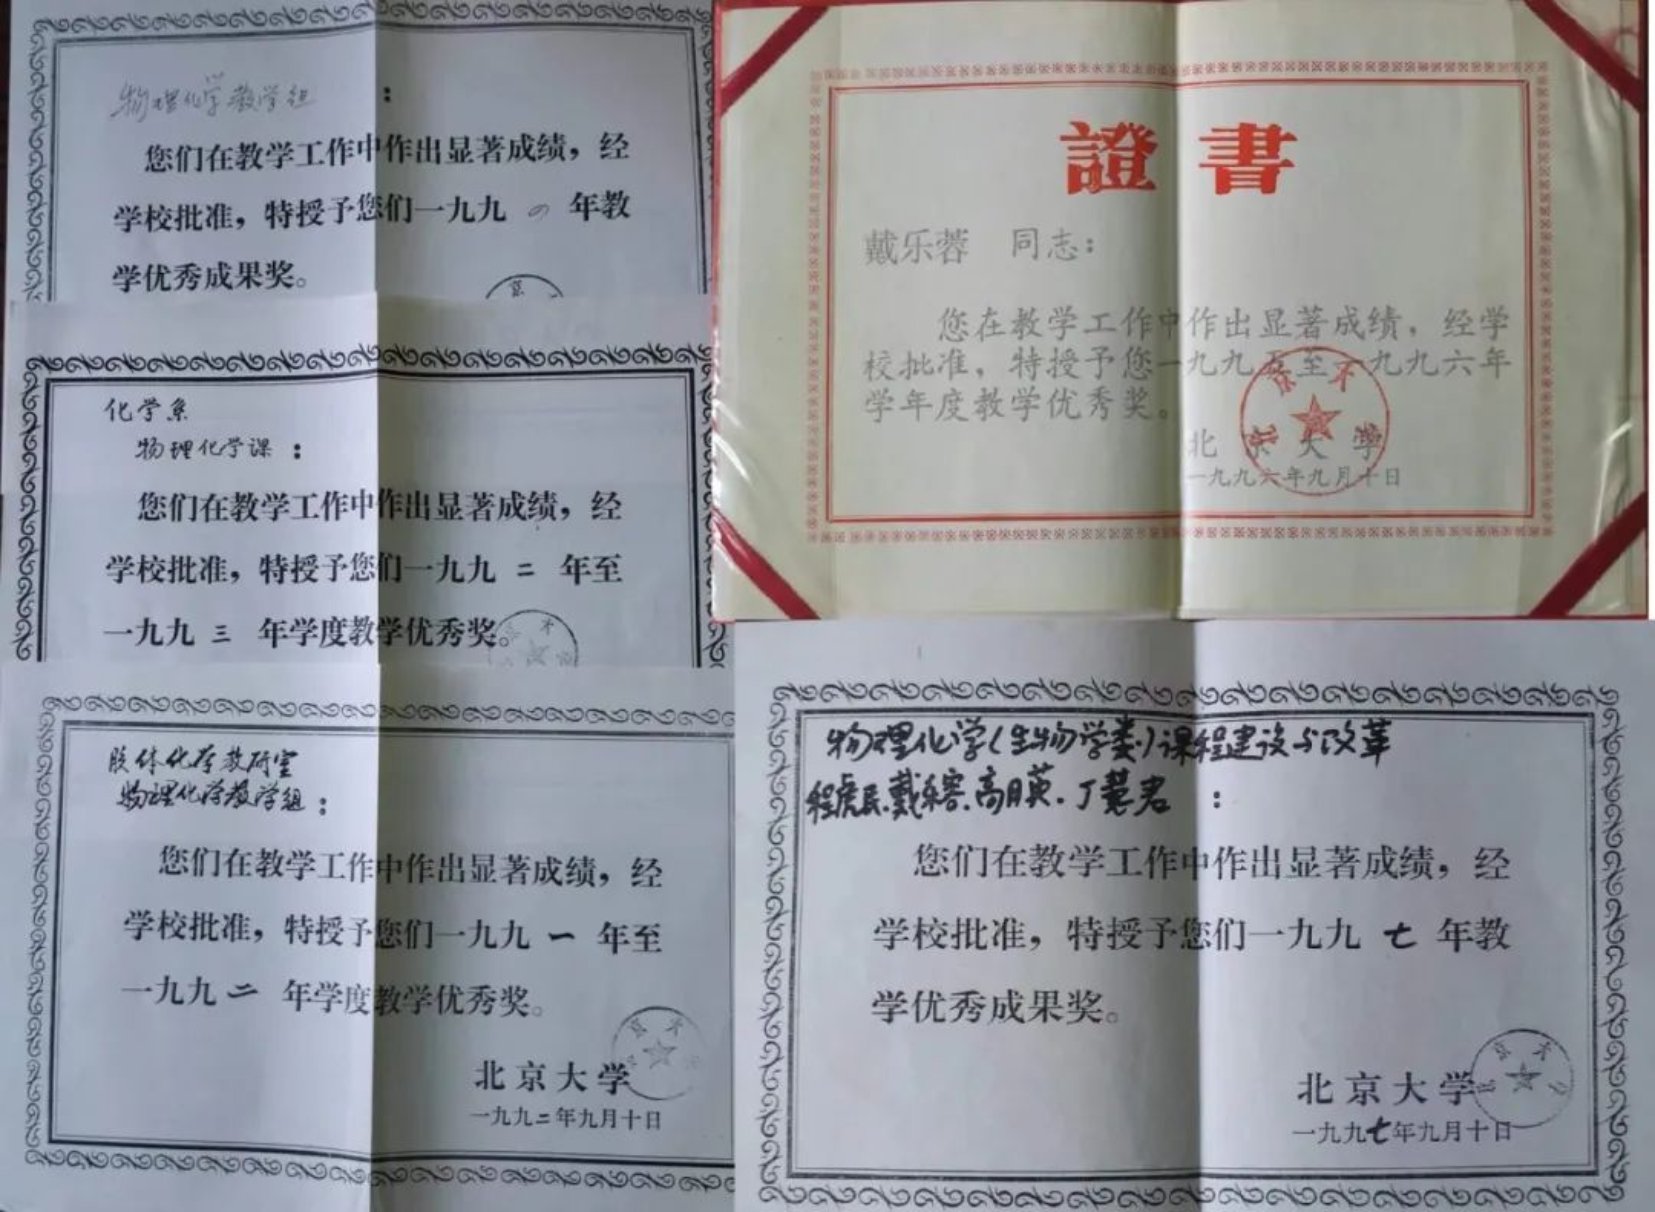 物理化学教学组:
您们在教学工作中作出显著成绩，经
学校批准，特授予您们一九九〇年教
学优秀成果奖。
化学系
物理化学课:
您们在教学工作中作出显著成绩，经
学校批准，特授予您们一九九二年至
一九九三年学度教学优秀奖。
胶体化学教研室
物理化学教学组:
您们在教学工作中作出显著成绩，经
学校批准，特授予您们一九九一年至
一九九二年学度教学优秀奖。
北京大学
一九九二年九月十日
證書
戴乐蓉 同志:
您在教学工作中作出显著成绩，经学
校批准，特授予您一九九五至一九九六年
学年度教学优秀奖。
北京大学
一九九六年九月十日
物理化学(生物学类)课程建设与改革
程虎民.戴乐蓉.高月英.丁慧君:
您们在教学工作中作出显著成绩，经
学校批准，特授予您们一九九七年教
学优秀成果奖。
北京大学
一九九七年九月十日